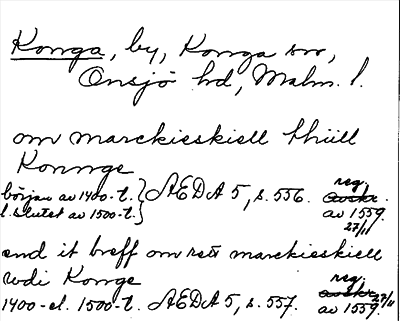 Konga, by, Konga sn,
Onsjö hd, Malm. l.
om marckieskiell thiill
Konnge
början av 1400-t. } ÆDA 5, s. 556. reg.
l. slutet av 1500-t. } av 1559
27/11
end it breff om rett marckieskiell
udi Konge reg.
1400-el. 1500-t. ÆDA 5, s. 557. av 1559 27/11